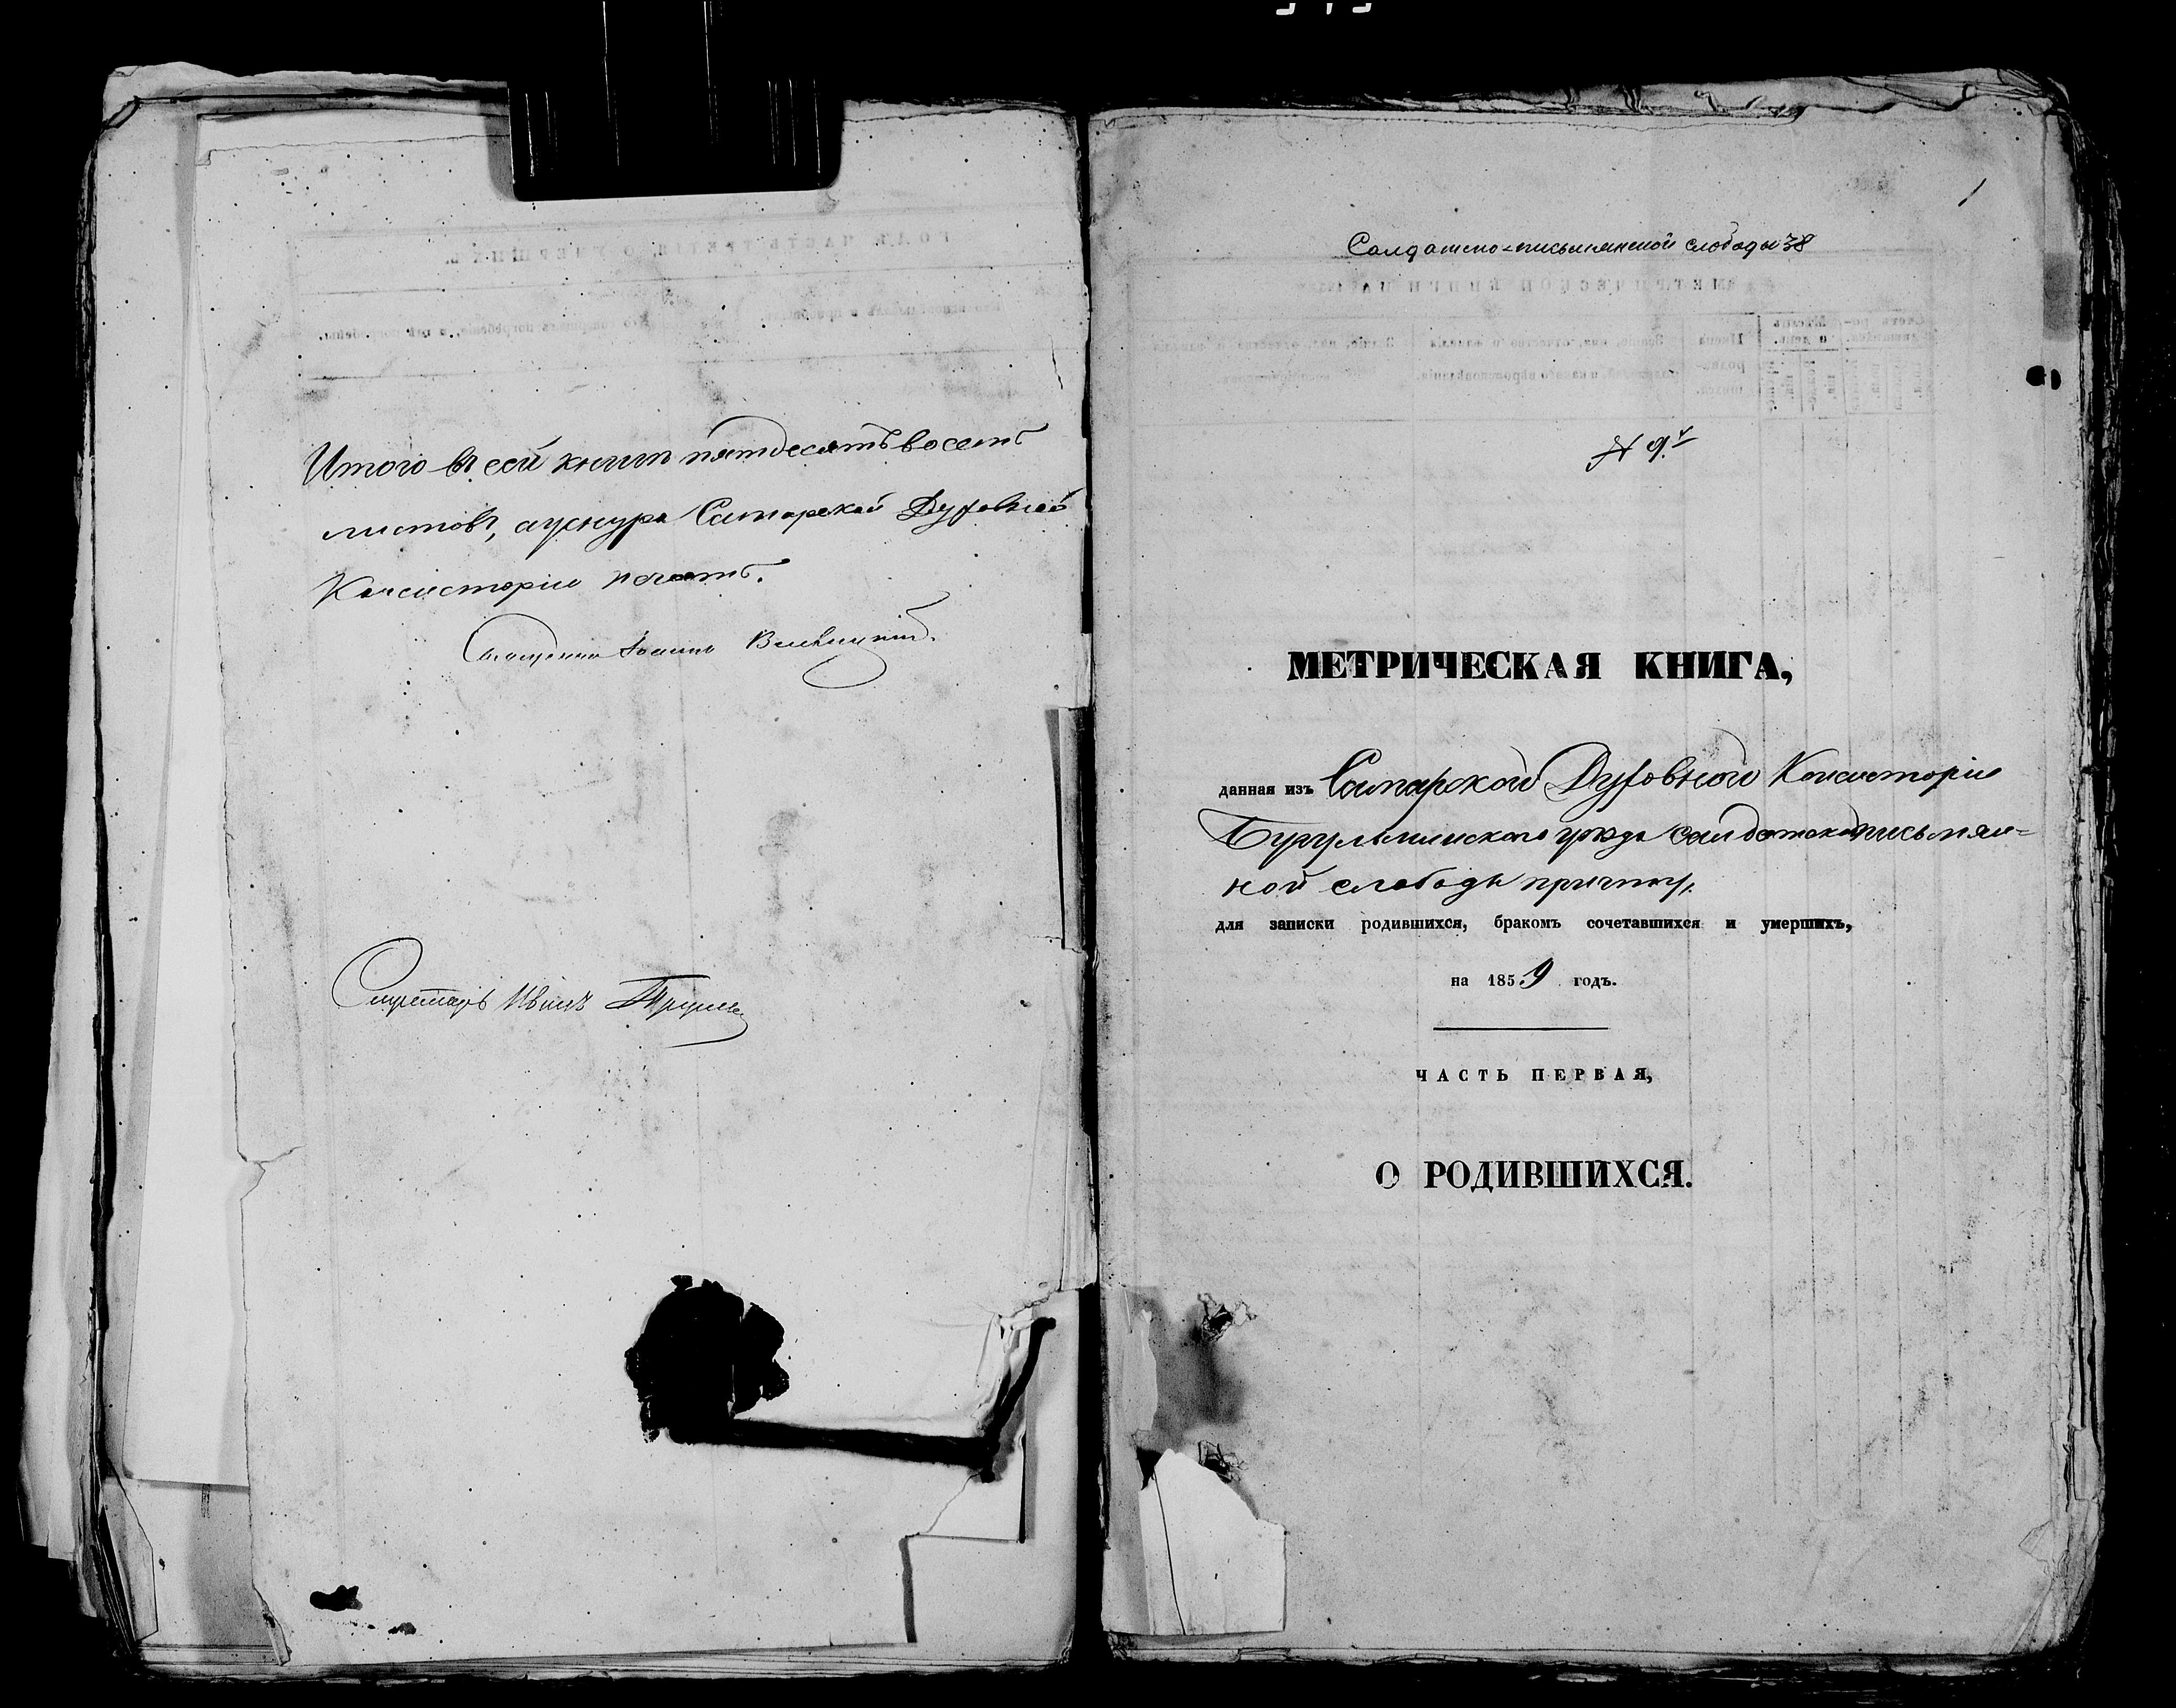 Итого въ сей книгѣ пятдесятъ восемь
листовъ, а у снура Самарской Духовной
Консисторіи печать.
Священникъ Іоаннъ
Секретарь Иванъ
1
Солдатско-письмянской слободы 38
№ 9.
МЕТРИЧЕСКАЯ КНИГА,
данная изъ Самарской Духовной Консисторіи
Бугульминскаго уѣзда солдатскописьмян=
ной слободы причту,
для записки родившихся, бракомъ сочетавшихся и умершихъ,
на 1859 годъ.
ЧАСТЬ ПЕРВАЯ,
О РОДИВШИХСЯ.